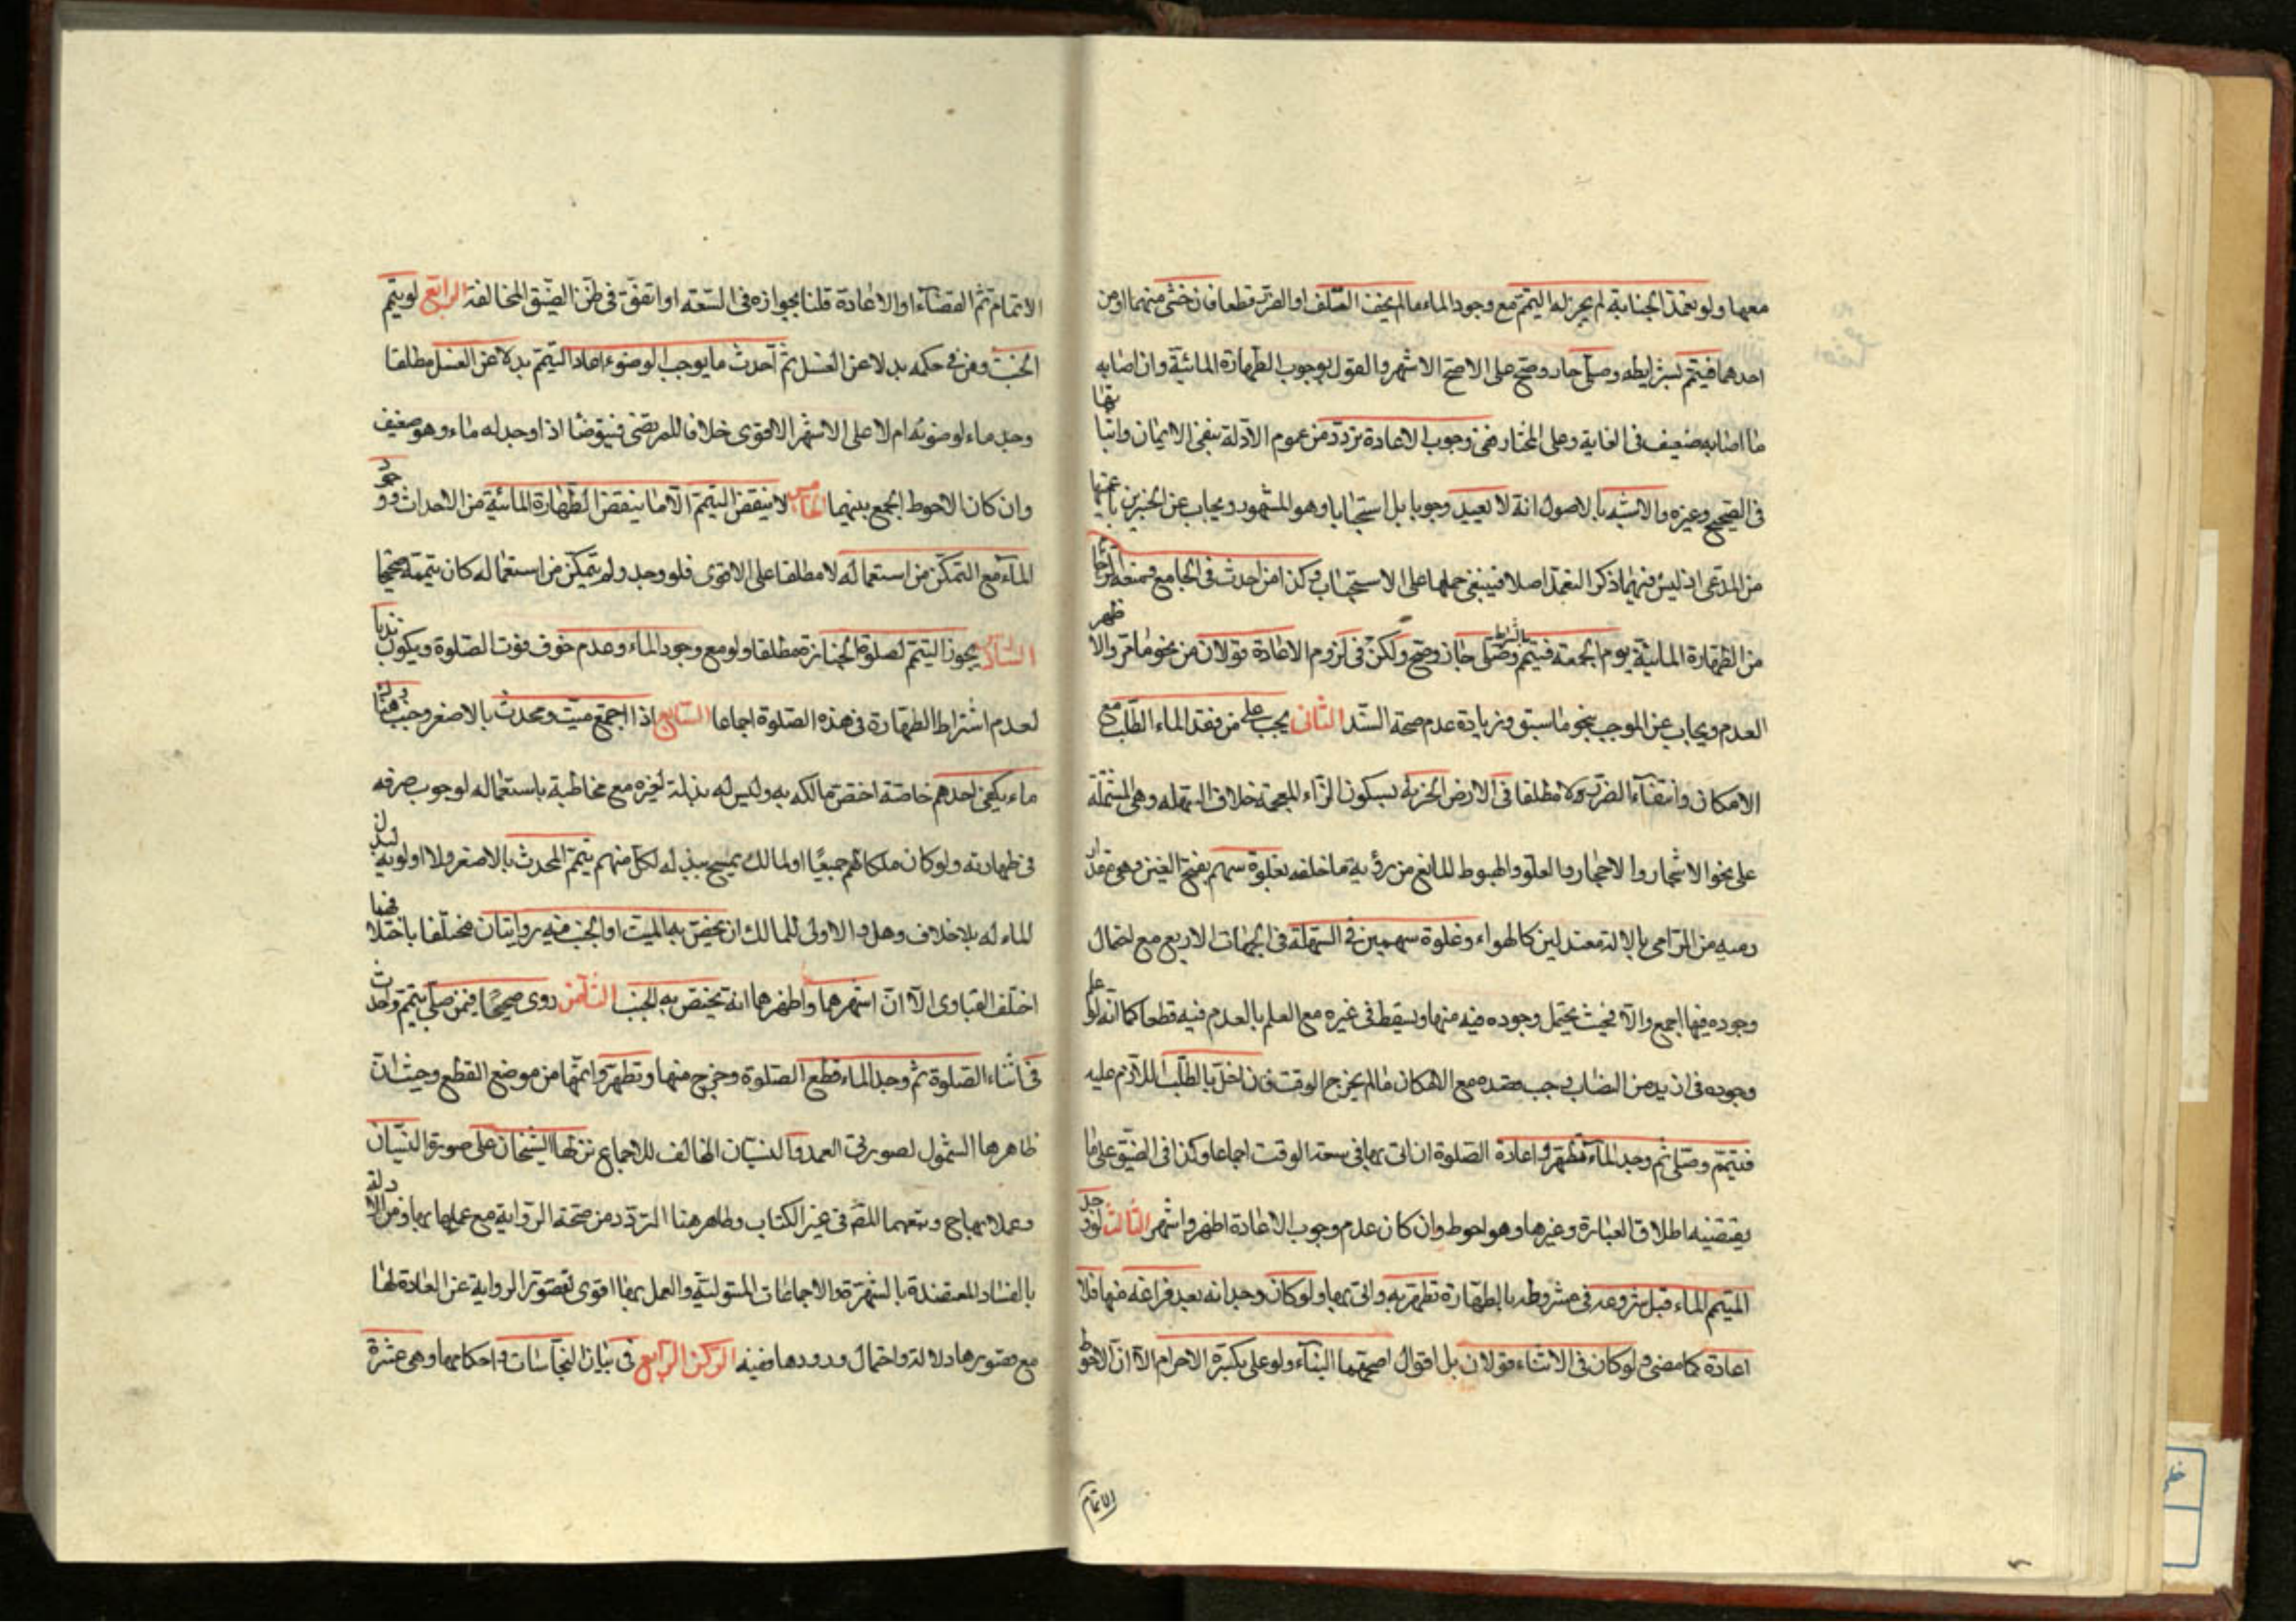 معها ولو تعمد الجنابة لم يجز له التيمم مع وجود الماء ما لم يخف التلف او الضرر قطعا فان خشى منهما او من
احدهما فيتيمم بشرايطه وصلى جاز وصح على الاصح الاشهر والقول بوجوب الطهارة المائية وان اصابه
ما اصابه ضعيف فى الغاية وعلى المختار ففى وجوب الاعادة تردد من عموم الادلة بنفى الايمان واثباتها
فى الصحيح وغيره والاشبه بالاصول انه لا يعيد وجوبا بل استحبابا وهو المشهور ويجاب عن الخبرين باعميتها
من المدعى اذ ليس فيهما ذكر التعمد اصلا فينبغى حملها على الاستحباب وكذا من احدث فى الجامع ومنعه الزحام
من الطهارة المائية يوم الجمعة فيتيمم بالشرايط وصلى جاز وصح ولكن فى لزوم الاعادة قولان من نحو ما مر والاظهر
العدم ويجاب عن الموجب بنحو ما سبق وزيادة عدم صحة السند الثانى يجب على من فقد الماء الطلب مع
الامكان وانتفاء الضرر ولا مطلقا فى الارض الحزنة بسكون الزاء المعجمة خلاف السهلة وهى المشتملة
على نحو الاشجار والاحجار والعلو والهبوط المانع من رؤية ما خلفه بغلوة سهم بفتح الغين وهى مقدار
رميه من الرامى بالالة معتدلين كالهواء وغلوة سهمين فى السهلة فى الجهات الاربع مع احتمال
وجوده فيها اجمع والا فبحيث يحتمل وجوده فيه منها ويسقط فى غيره مع العلم بالعدم فيه قطعا كما انه لو علم
وجوده فى ازيد من النصاب وجب قصده مع الامكان ما لم يخرج الوقت فان اخل بالطلب اللازم عليه
فتيمم وصلى ثم وجد الماء تطهر و اعادة الصلوة ان اتى بها فى سعة الوقت اجماعا وكذا فى الضيق على ما
يقتضيه اطلاق العبارة وغيرها وهو احوط وان كان عدم وجوب الاعادة اظهر واشهر الثالث لو وجد
المتيمم الماء قبل شروعه فى مشروطه بالطهارة تطهر به واتى بها ولو كان وجدانه بعد فراغه منها فلا
اعادة كما مضى ولو كان فى الاثناء فقولان بل اقوال اصحهما البناء ولو على تكبيرة الاحرام الا ان الاحوط
الاتمام
الاتمام ثم القضاء او الاعادة قلنا بجوازه فى السعة او اتفق فى ظن الضيق المخالفة الرابع لو تيمم
الجنب ومن فى حكمه بدلا عن الغسل ثم احدث ما يوجب الوضوء اعاد التيمم بدلا عن الغسل مطلقا
وجد ماء لوضوئه ام لا على الاشهر الاقوى خلافا للمرتضى فيتوضا اذا وجد له ماء وهو ضعيف
وان كان الاحوط الجمع بينهما الخامس لا ينقض التيمم الا ما ينقض الطهارة المائية من الاحداث ووجود
الماء مع التمكن من استعماله لا مطلقا على الاقوى فلو وجد ولم يتمكن من استعماله كان تيممه صحيحا
السادس يجوز التيمم لصلوة الجنازة مطلقا ولو مع وجود الماء وعدم خوف فوت الصلوة ويكون ندبا
لعدم اشتراط الطهارة فى هذه الصلوة اجماعا السابع اذا اجتمع ميت ومحدث بالاصغر وجنب وهناك
ماء يكفى احدهم خاصة اختص مالكه به وليس له بذله لغيره مع مخاطبة باستعماله لوجوب صرفه
فى طهارته ولو كان ملكا لهم جميعا او لمالك يسمح ببذله لكل منهم تيمم المحدث بالاصغر ولا اولوية لبذل
الماء له بلا خلاف وهل الاولى للمالك ان يخص به الميت او الجنب فيه روايتان مختلفا باختلافهما
اختلف الفتاوى الا ان اشهرهما واظهرهما انه يختص به الجنب الثامن روى صحيحا فيمن صلى بتيمم واحدث
فى اثناء الصلوة ثم وجد الماء قطع الصلوة وخرج منها وتطهر واتمها من موضع القطع وحيث ان
ظاهرها الشمول لصورتى العمد والنسيان المخالف للاجماع نزلها الشيخان على صورة النسيان
وعملا بها ح وتبعهما المص فى غير الكتاب وظاهر هنا التردد من صحة الرواية مع عملهما بها ومن الادلة
بالفساد المعتضدة بالشهرة والاجماعات المنقولة والعمل بها اقوى لقصور الرواية عن المعادة لها
مع قصورها دلالة واحتمال ورودها تقية الركن الرابع فى بيان النجاسات واحكامها وهى عشرة